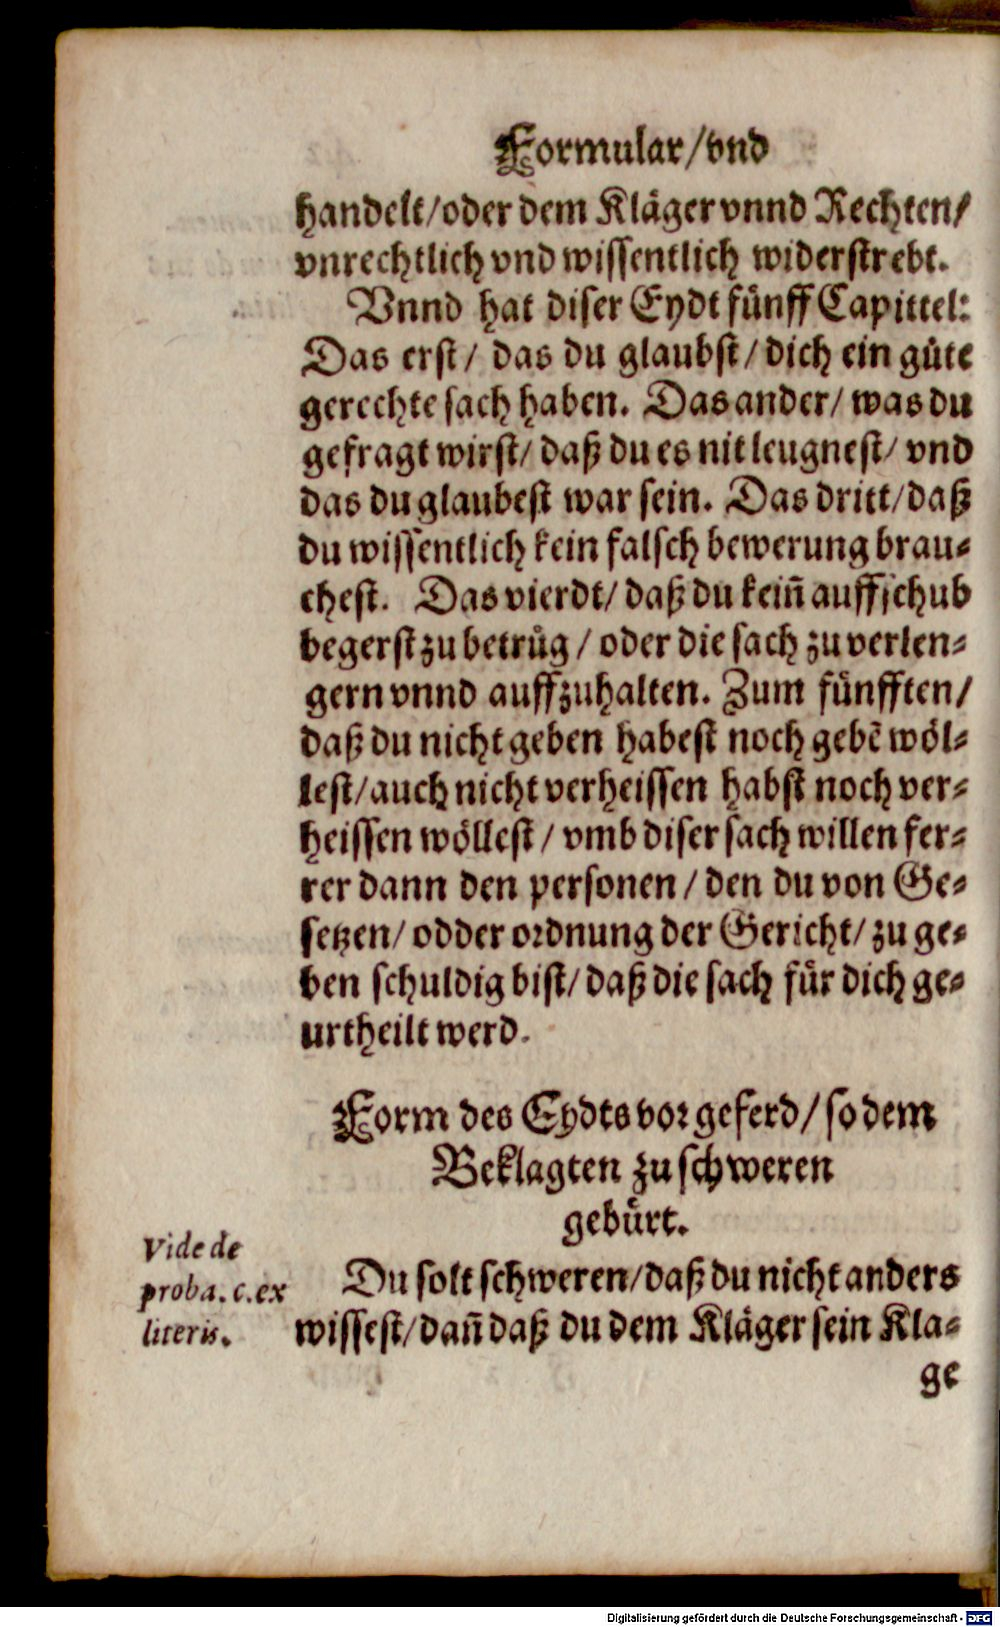 Formular/vnd
handelt/oder dem Kläger vnnd Rechten/
vnrechtlich vnd wissentlich widerstrebt.
Vnnd hat diser Eydt fünff Capittel:
Das erst/ das du glaubst/dich ein gůte
gerechte sach haben. Das ander/ was du
gefragt wirst/ daß du es nit leugnest/ vnd
das du glaubest war sein. Das dritt/daß
du wissentlich kein falsch bewerung brau-
chest. Das vierdt/ daß du keiñ auffschub
begerst zu betrůg / oder die sach zu verlen-
gern vnnd auffzuhalten. Zum fünfften/
daß du nicht geben habest noch gebẽ wöl-
lest/auch nicht verheissen habst noch ver-
heissen wöllest / vmb diser sach willen fer-
rer dann den personen / den du von Ge-
setzen/ odder ordnung der Gericht/ zu ge-
ben schuldig bist/ daß die sach für dich ge-
urtheilt werd.
Form des Eydts vor geferd/ so dem
Beklagten zu schweren
gebürt.
Vide de
proba. c. ex
literis.
Du solt schweren/daß du nicht anders
wissest/dañ daß du dem Kläger sein Kla-
ge
Digitalisierung gefördert durch die Deutsche Forschungsgemeinschaft - DFG